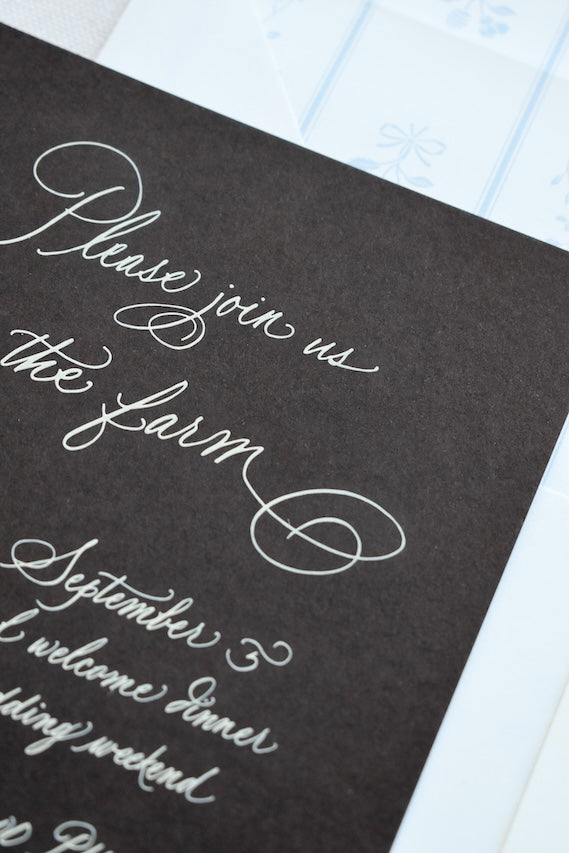 Please join us
the farm
September 3
welcome dinner
weekend